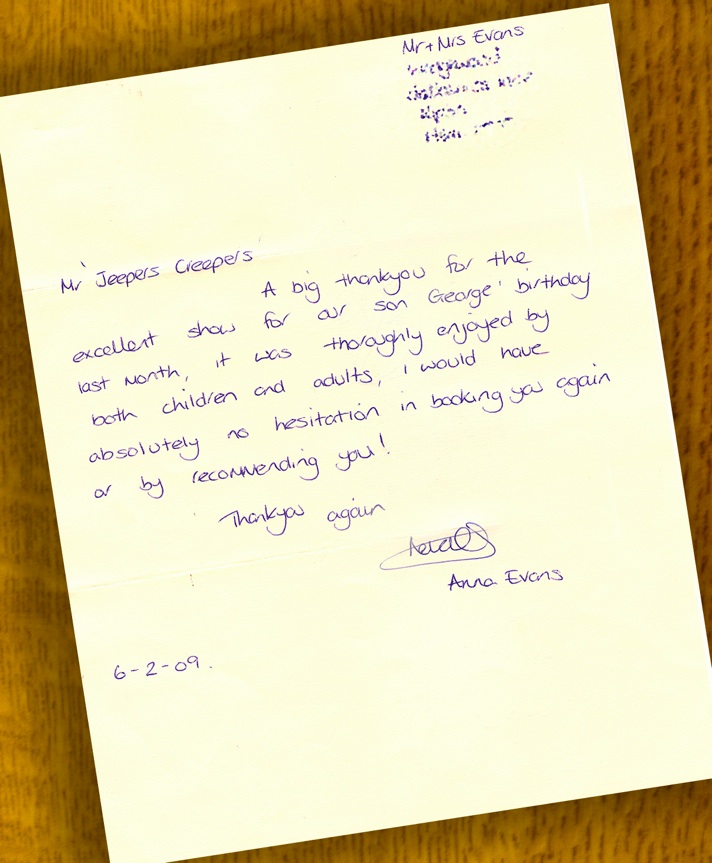 Mr + Mrs Evans
Mr Jeepers Creepers
A big thankyou for the
excellent show for our son George' birthday
last month, it was thoroughly enjoyed by
both children and adults, I would have
absolutely no hesitation in booking you again
or by recommending you!
Thankyou again
Anna Evans
6-2-09.